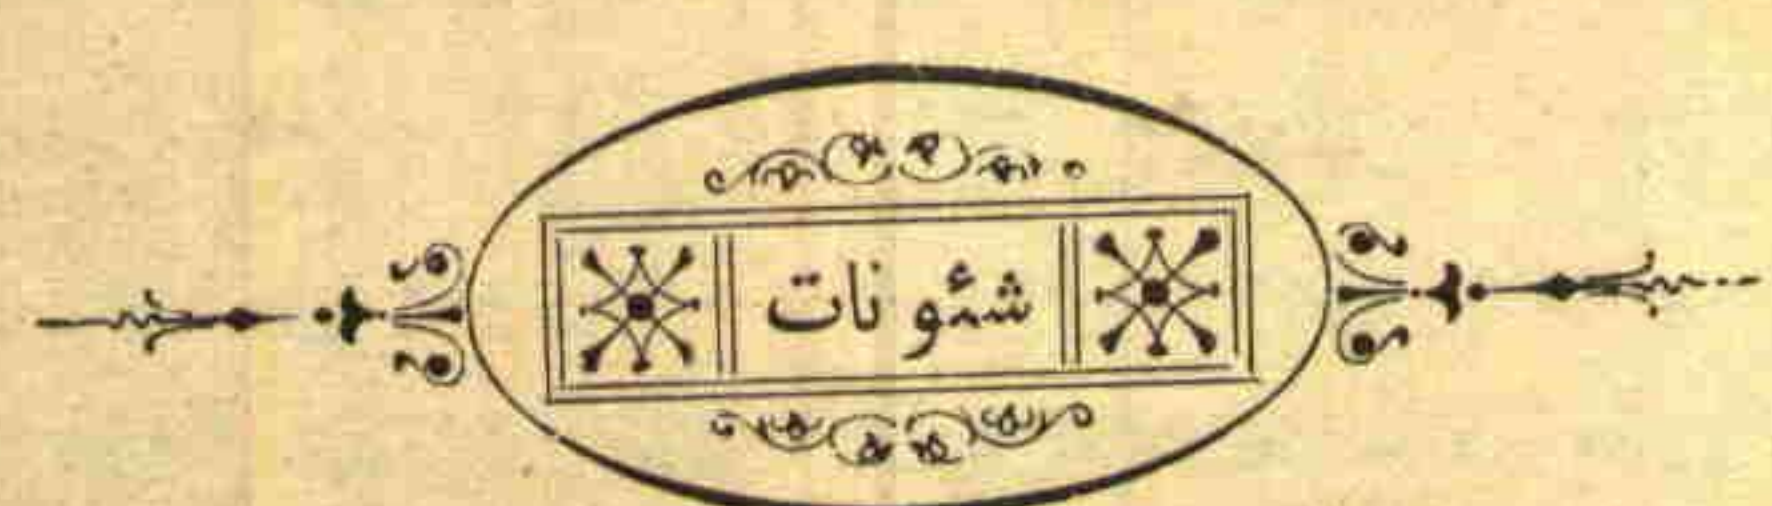 شئونات